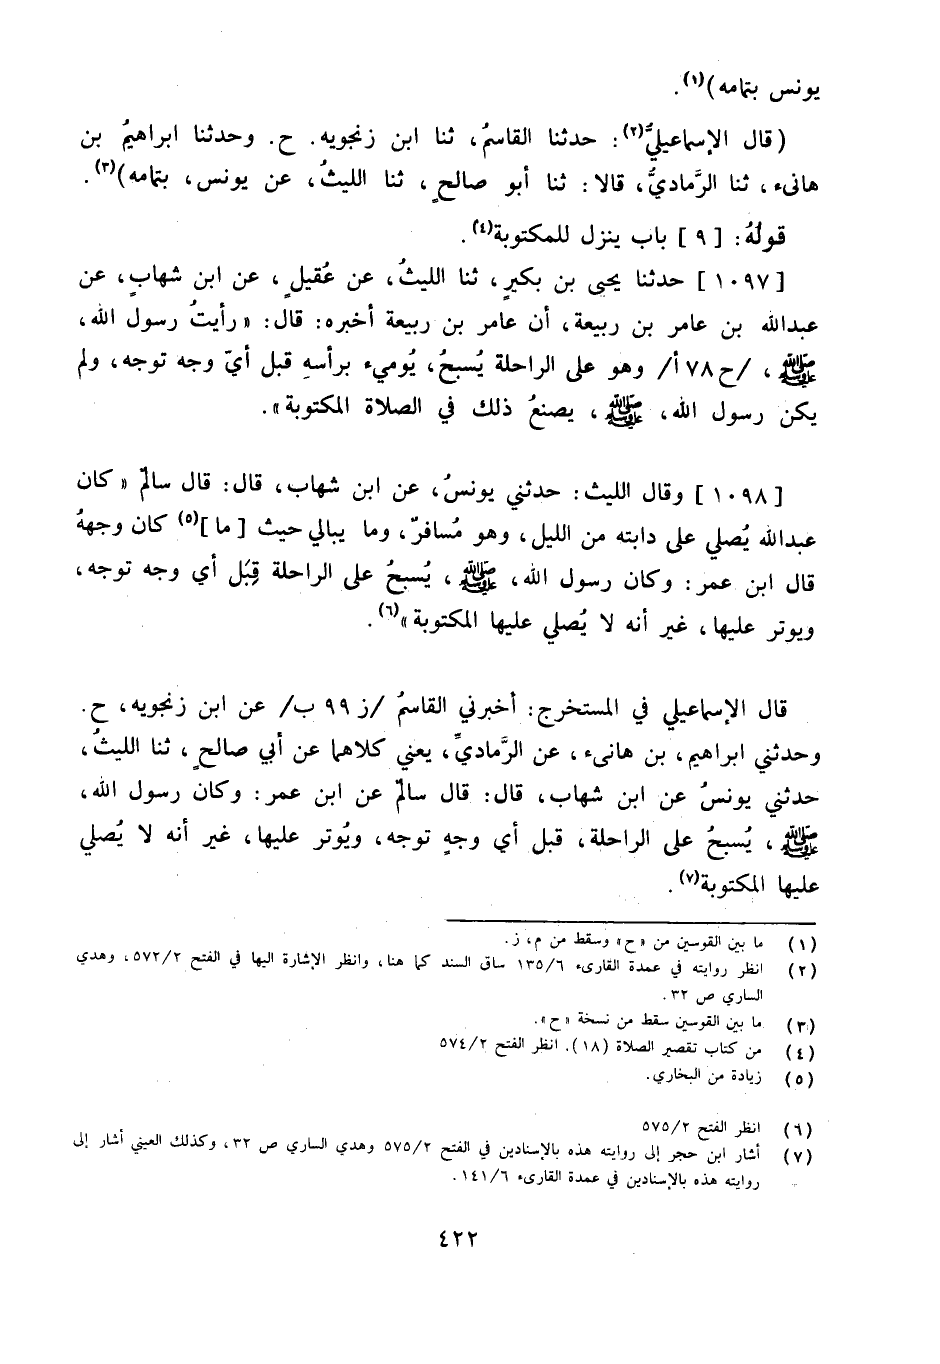 يونس بتمامه)(١).
(قال الإسماعيليُّ(٢): حدثنا القاسمُ، ثنا ابن زنجويه. ح. وحدثنا ابراهيمُ بن
هانىء، ثنا الرَّماديُّ، قالا: ثنا أبو صالحٍ، ثنا الليثُ، عن يونس، بتمامه)(٣).
قولُهُ: [٩] باب ينزل للمكتوبة(٤).
[١٠٩٧] حدثنا يحيى بن بكيرٍ، ثنا الليثُ، عن عُقيلٍ، عن ابن شهابٍ، عن
عبدالله بن عامر بن ربيعة، أن عامر بن ربيعة أخبره: قال: «رأيتُ رسول الله،
ﷺ، /ح ٧٨ أ/ وهو على الراحلة يُسبحُ، يُوميء برأسهِ قبل أيّ وجه توجه، ولم
يكن رسول الله، ﷺ، يصنعُ ذلك في الصلاة المكتوبة».
[١٠٩٨] وقال الليث: حدثني يونسُ، عن ابن شهاب، قال: قال سالمٌ «كان
عبدالله يُصلي على دابته من الليل، وهو مُسافرٌ، وما يبالي حيث [ما](٥) كان وجههُ
قال ابن عمر: وكان رسول الله، ﷺ، يُسبحُ على الراحلة قِبَل أي وجه توجه،
ويوتر عليها، غير أنه لا يُصلي عليها المكتوبة»(٦).
قال الإسماعيلي في المستخرج: أخبرني القاسمُ /ز ٩٩ ب/ عن ابن زنجويه، ح.
وحدثني ابراهيم، بن هانىء، عن الرَّماديِّ، يعني كلاهما عن أبي صالحٍ، ثنا الليثُ،
حدثني يونسُ عن ابن شهاب، قال: قال سالمٌ عن ابن عمر: وكان رسول الله،
ﷺ، يُسبحُ على الراحلة، قبل أي وجهٍ توجه، ويُوتر عليها، غير أنه لا يُصلي
عليها المكتوبة(٧).
(١) ما بين القوسين من «ح» وسقط من م، ز.
(٢) انظر روايته في عمدة القارىء ١٣٥/٦ ساق السند كما هنا، وانظر الإشارة اليها في الفتح ٥٧٢/٢، وهدي
الساري ص ٣٢.
(٣) ما بين القوسين سقط من نسخة «ح».
(٤) من كتاب تقصير الصلاة (١٨). انظر الفتح ٥٧٤/٢
(٥) زيادة من البخاري.
(٦) انظر الفتح ٥٧٥/٢
(٧) أشار ابن حجر إلى روايته هذه بالإسنادين في الفتح ٥٧٥/٢ وهدي الساري ص ٣٢، وكذلك العيني أشار إلى
روايته هذه بالإسنادين في عمدة القارىء ١٤١/٦.
٤٢٢